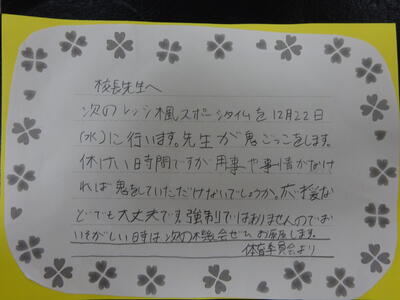 校長先生へ
次のレッツ楓スポーツタイムを12月22日
(水)に行います。先生が鬼ごっこをします。
休けい時間ですが用事や事情がなけ
れば鬼をしていただけないでしょうか。応援な
どでも大丈夫です。強制ではありませんのでお
いそがしい時は次の機会ぜひお願します。
体育委員会より